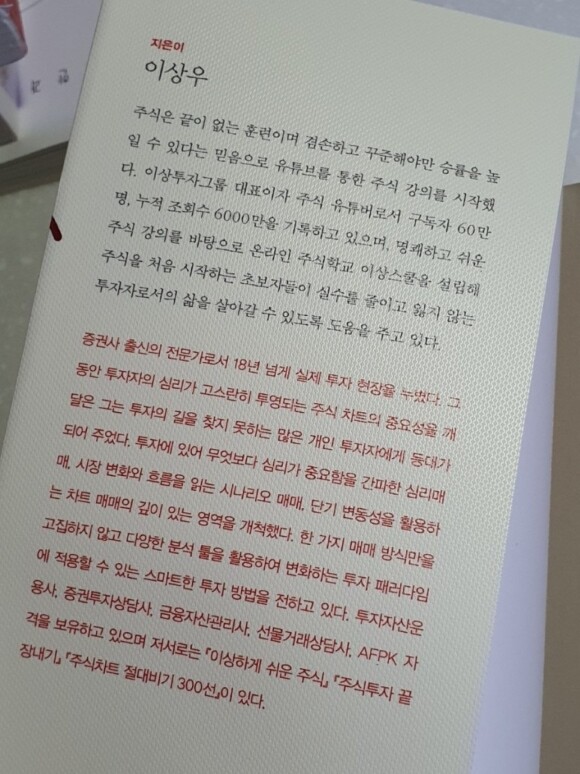 지은이
이상우
주식은 끝이 없는 훈련이며 겸손하고 꾸준해야만 승률을 높
일 수 있다는 믿음으로 유튜브를 통한 주식 강의를 시작했
다. 이상투자그룹 대표이자 주식 유튜버로서 구독자 60만
명, 누적 조회수 6000만을 기록하고 있으며, 명쾌하고 쉬운
주식 강의를 바탕으로 온라인 주식학교 이상스쿨을 설립해
주식을 처음 시작하는 초보자들이 실수를 줄이고 잃지 않는
투자자로서의 삶을 살아갈 수 있도록 도움을 주고 있다.
증권사 출신의 전문가로서 18년 넘게 실제 투자 현장을 누볐다. 그
동안 투자자의 심리가 고스란히 투영되는 주식 차트의 중요성을 깨
달은 그는 투자의 길을 찾지 못하는 많은 개인 투자자에게 등대가
되어 주었다. 투자에 있어 무엇보다 심리가 중요함을 간파한 심리매
매, 시장 변화와 흐름을 읽는 시나리오 매매, 단기 변동성을 활용하
는 차트 매매의 깊이 있는 영역을 개척했다. 한 가지 매매 방식만을
고집하지 않고 다양한 분석 툴을 활용하여 변화하는 투자 패러다임
에 적용할 수 있는 스마트한 투자 방법을 전하고 있다. 투자자산운
용사, 증권투자상담사, 금융자산관리사, 선물거래상담사, AFPK 자
격을 보유하고 있으며 저서로는 『이상하게 쉬운 주식』 『주식투자 끝
장내기』 『주식차트 절대비기 300선』이 있다.